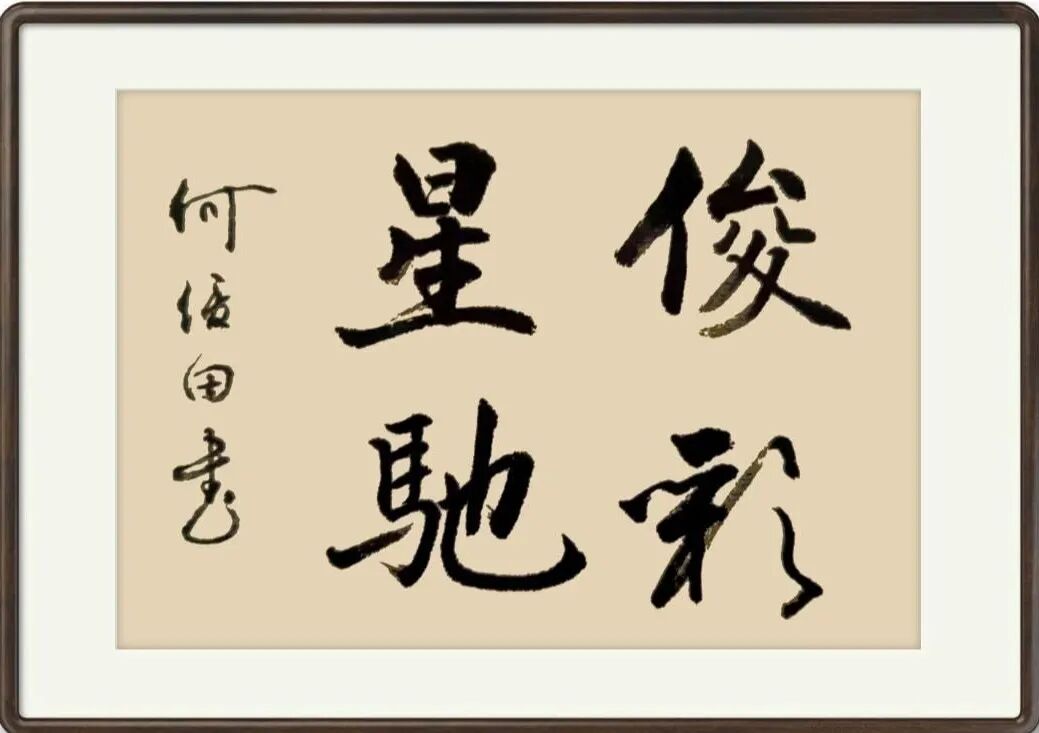 俊彩
星馳
何俊田書